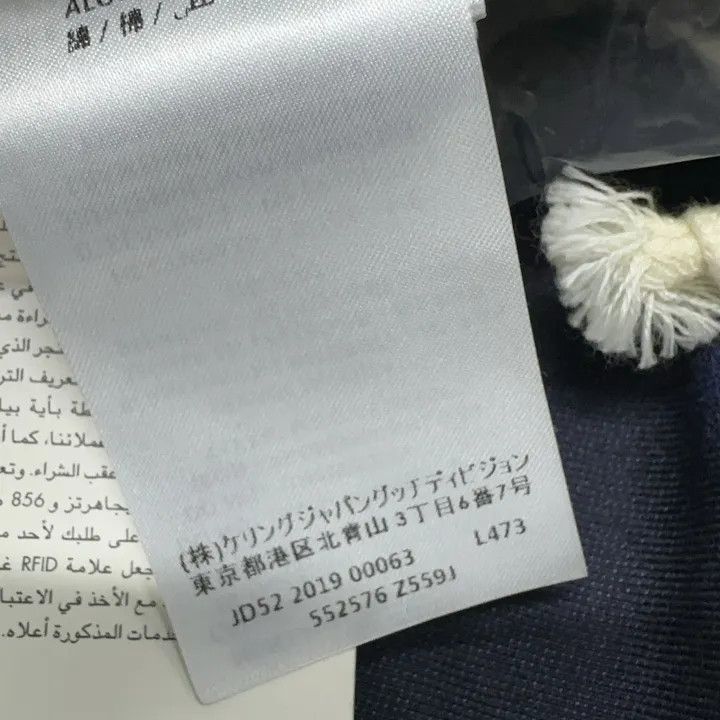 綿 / 棉 /
(株)ケリングジャパングッチディビジョン
東京都港区北青山 3丁目6番7号
JD52 2019 00063 L473
552576 Z559J
في
شراءة
جر الذي
عريف التر
بأية بيا
ملائنا، كما أ
عقب الشراء. وتع
جاهرتز و 856
على طلبك لأحد
جعل علامة RFID
مع الأخذ في الاعتبا
دمات المذكورة أعلاه.